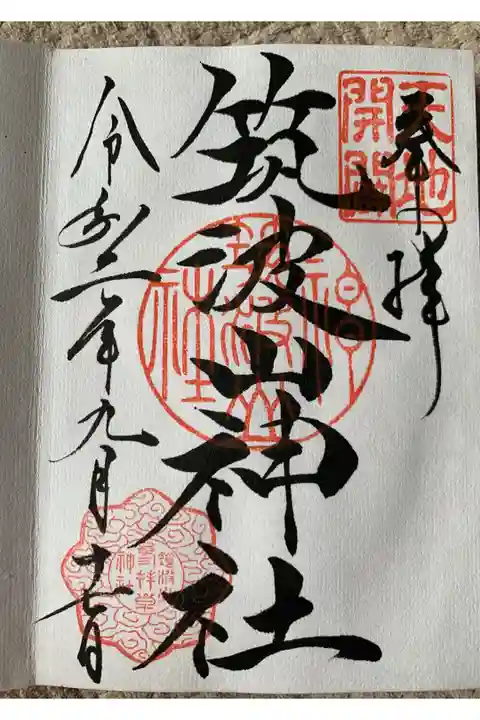 奉拝
天地
開闢
筑波山神社
筑波山
神社
令和二年九月十七日
筑波山
神社